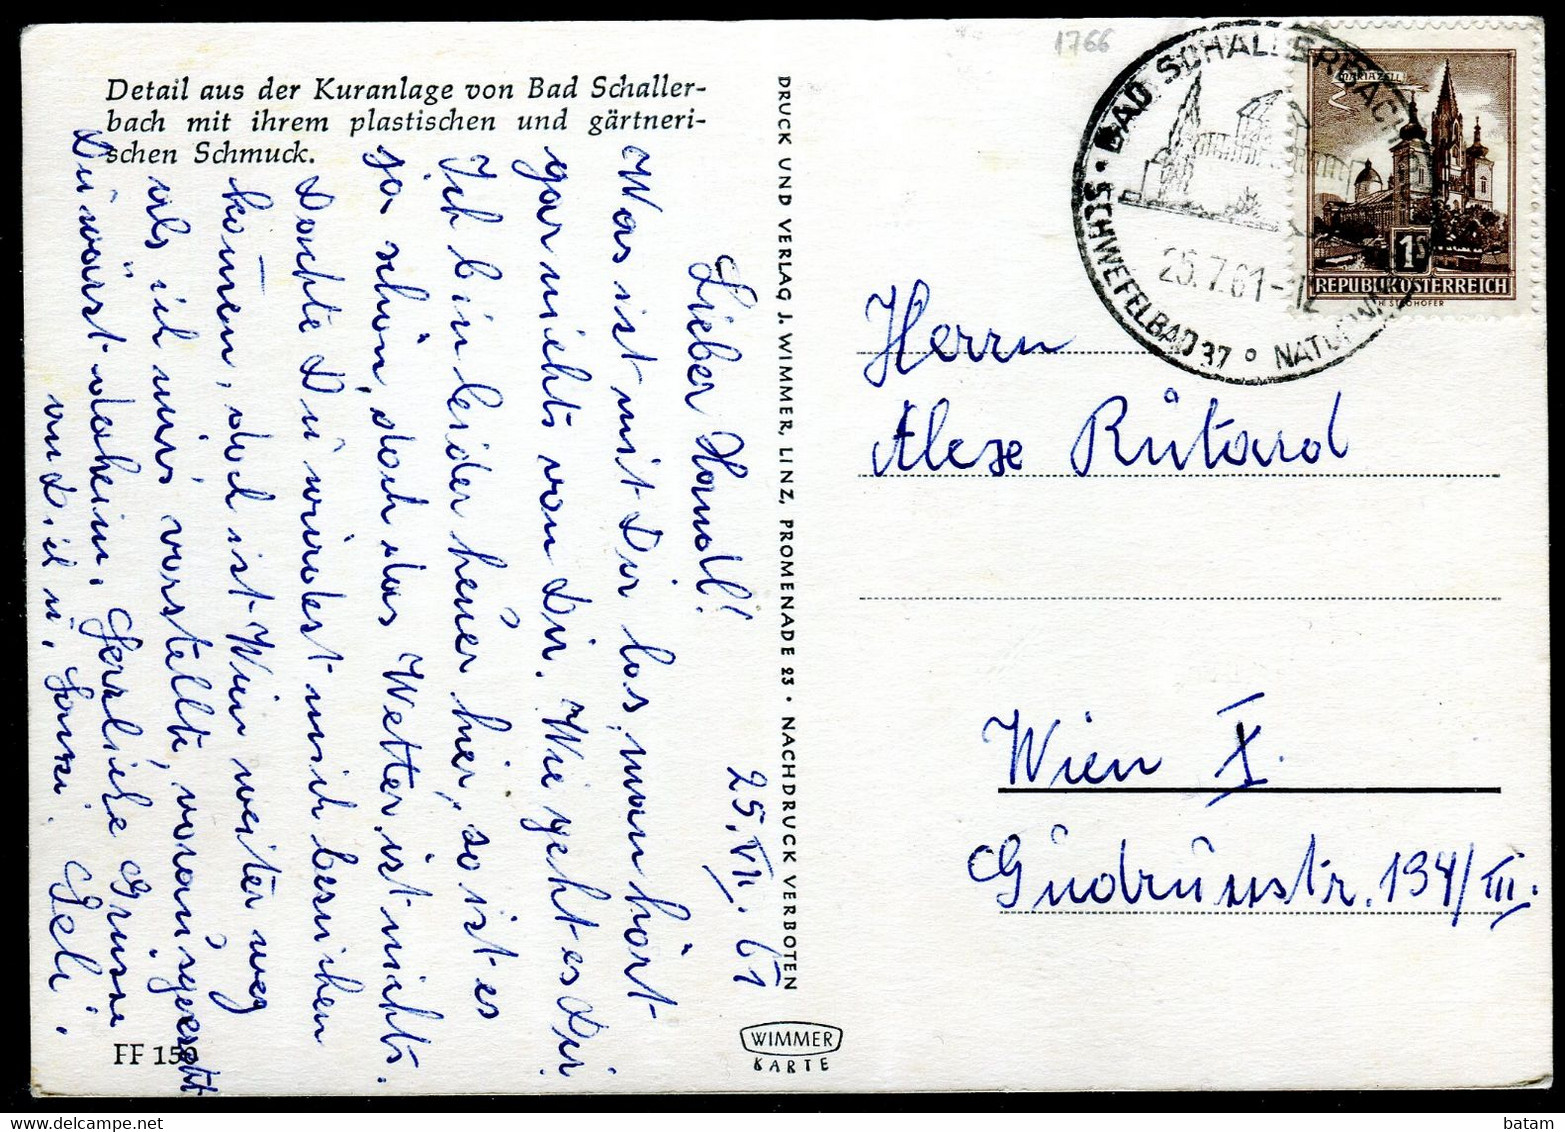 Detail aus der Kuranlage von Bad Schaller-
bach mit ihrem plastischen und gärtneri-
schen Schmuck.
25. VII. 61
Lieber Handl!
Was ist mit Dir los, man hört
gar nichts von Dir. Wie geht es Dir
Ich bin leider heuer hier, so ist es
ja schön, doch das Wetter ist nichts.
Dachte Du würdest mich besuchen
kom̄en, doch ist Wien weiter weg
als ich mirs vorstellte, vorausgesetzt
Du wärst daheim. Herzliche Grüsse
an Dich u.
FF 159
DRUCK UND VERLAG J. WIMMER, LINZ, PROMENADE 23 · NACHDRUCK VERBOTEN
WIMMER
KARTE
1766
BAD SCHALLERBACH
· SCHWEFELBAD 37° NATURW
25.7.61-12
MARIAZELL
1S
REPUBLIK ÖSTERREICH
H. STROHOFER
Herrn
Alexe Rutard
Wien X.
Gudrunstr. 134/III.
batam